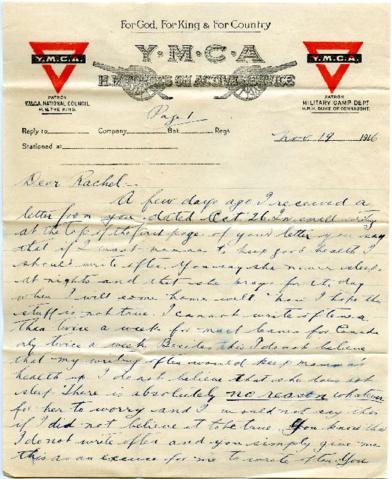 For God, For King & For Country
Y.M.C.A
Y.M.C.A.
Y.M.C.A.
H.M. FORCES ON ACTIVE SERVICE
PATRON
Y.M.C.A. NATIONAL COUNCIL
H.M. THE KING.
PATRON
MILITARY CAMP DEPT
H.R.H. DUKE OF CONNAUGHT.
Page 1
Reply to Company Bat. Regt.
Stationed at
Nov. 19 1916
Dear Rachel -
A few days ago I received a
letter from you dated Oct 26. In small writing
at the top of the first page of your letter you say
that if I want mamma to keep good health I
should write often. You say she never sleeps
at nights and that she prays for the day
when I will come home well. Now I hope this
stuff is not true. I cannot write oftener
than twice a week for mail leaves for Canada
only twice a week. Besides this I do not believe
that my writing often would keep mamma's
health up. I do not believe that she does not
sleep. There is absolutely no reason whatever
for her to worry and I would not say this
if I did not believe it to be true. You know that
I do not write often and you simply give me
this as an excuse for me to write often. You